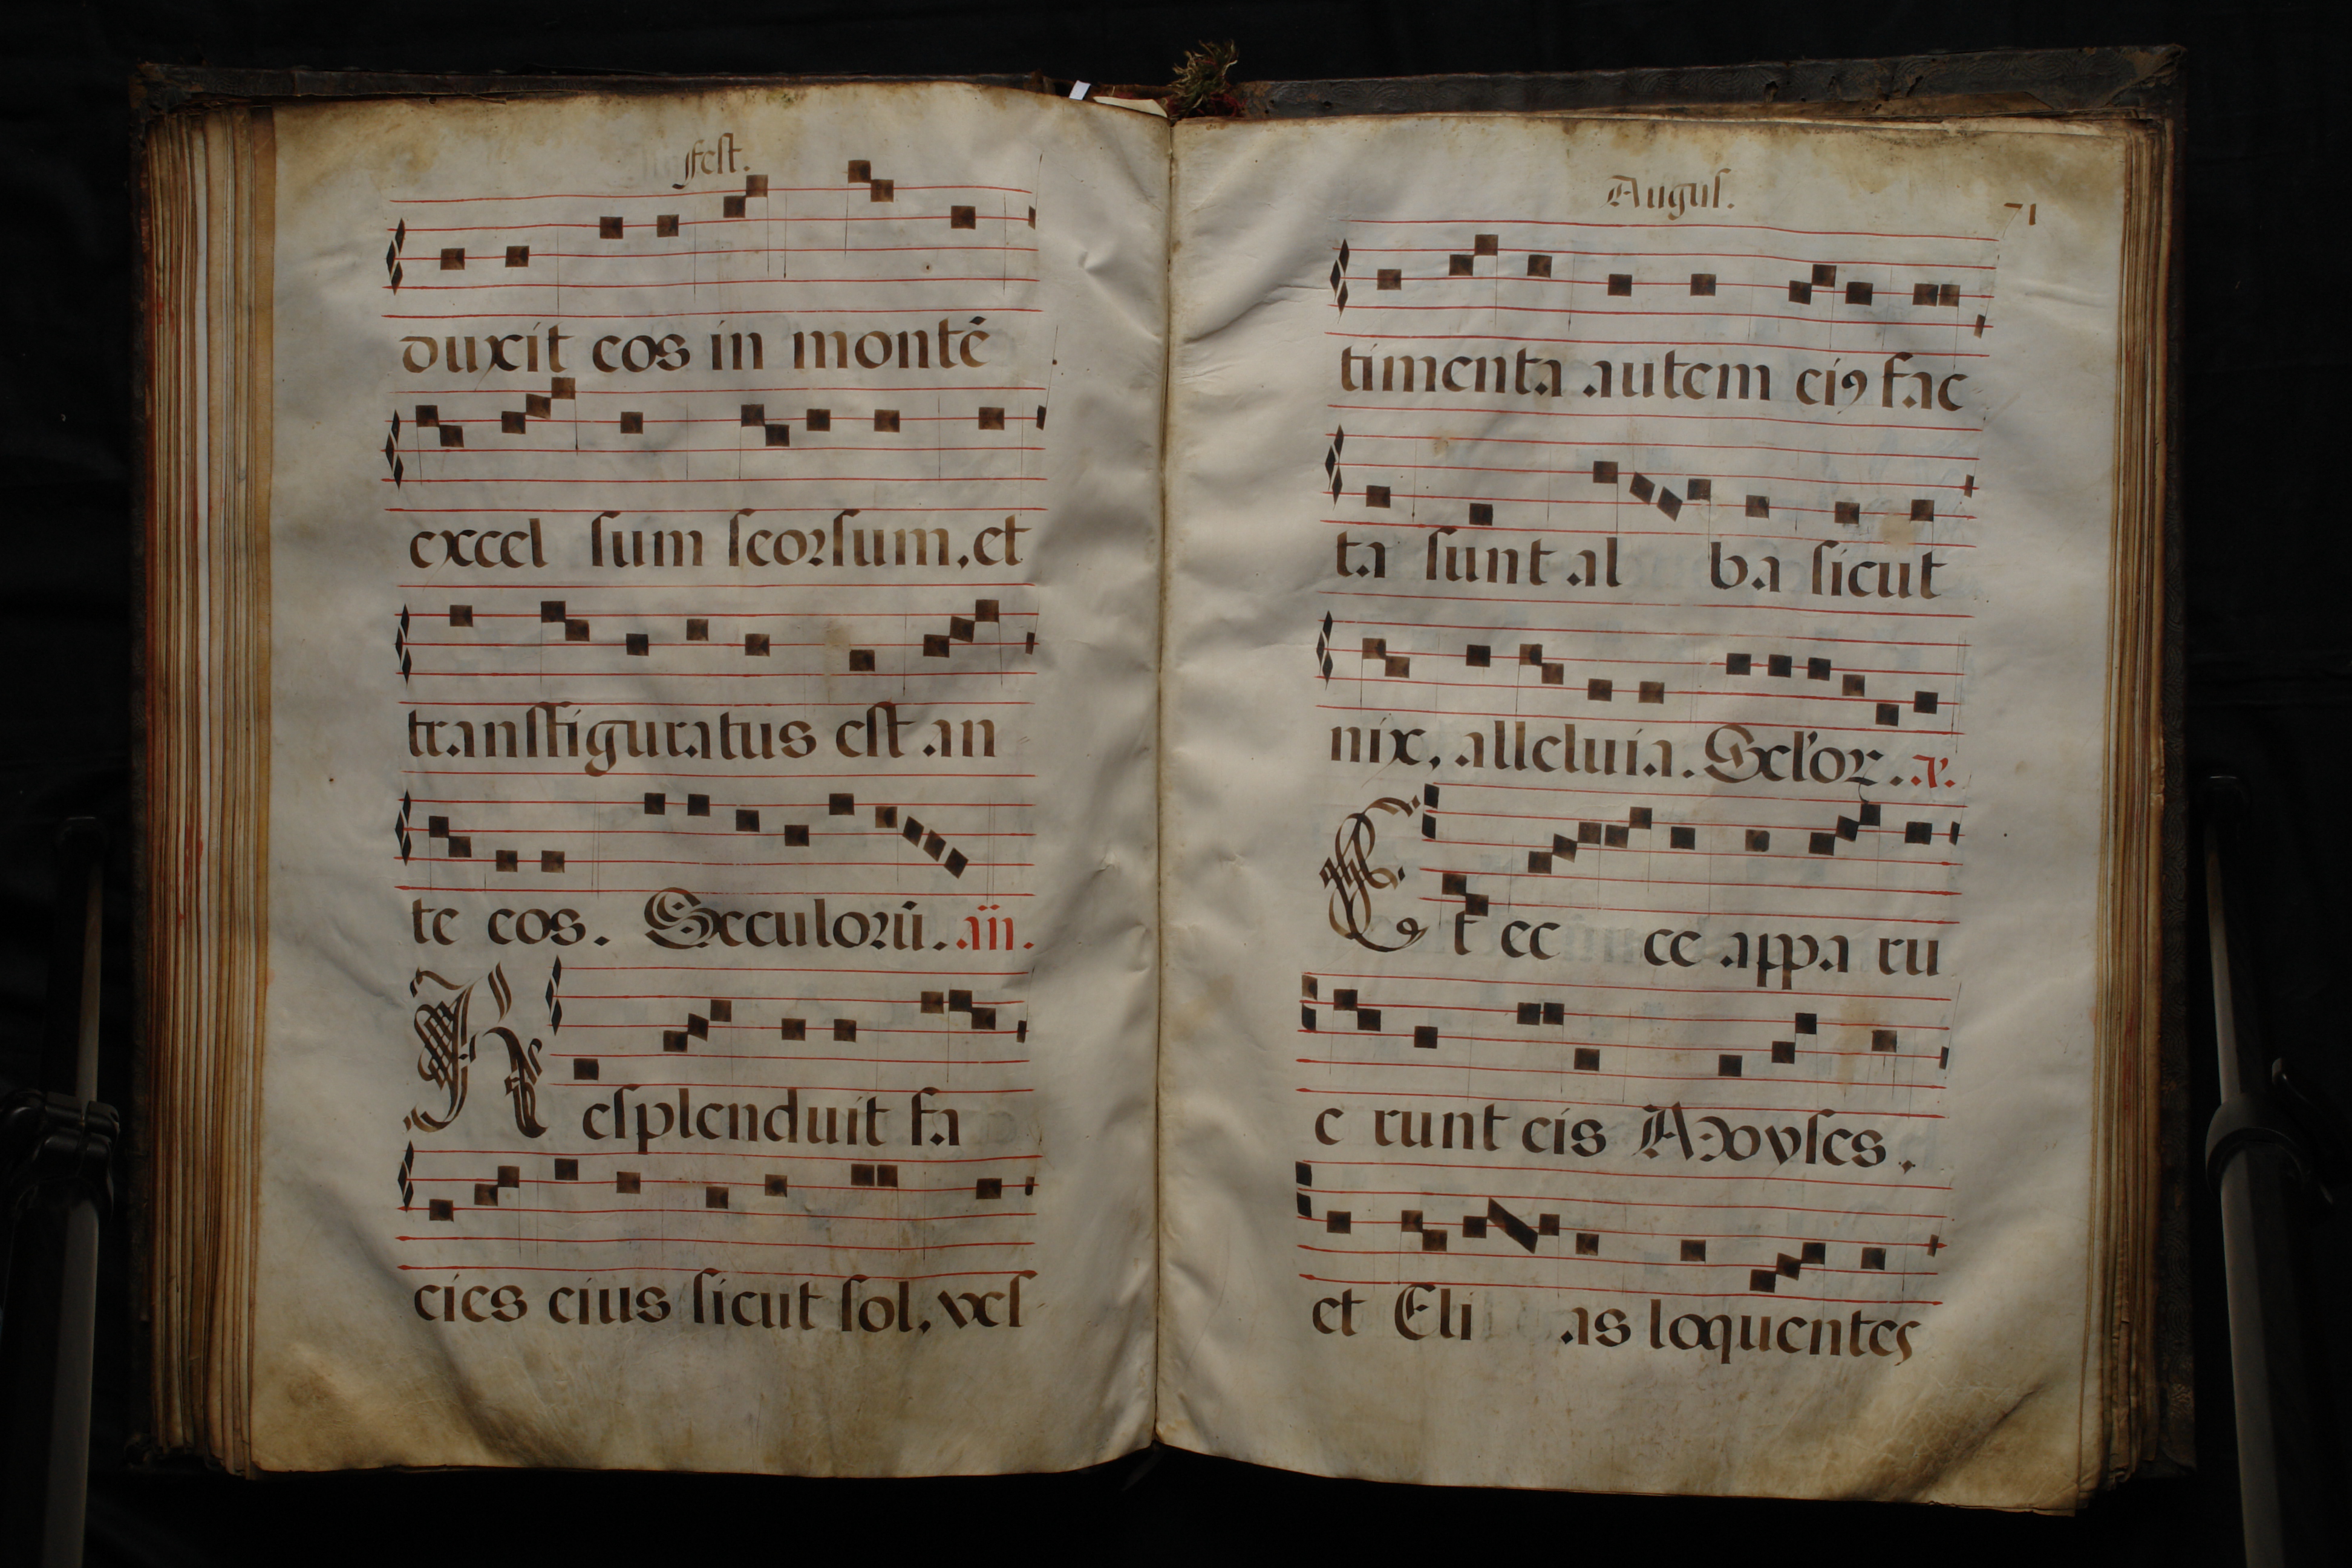 fest.
duxit eos in montē
excel sum seorsum, et
transfiguratus est an
te eos. Seculorū. aii.
Resplenduit fa
cies eius sicut sol, ves
Augus. 71
timenta autem eiꝰ fac
ta sunt al ba sicut
nix, alleluia. Sclor. a.
Et ec ce appa ru
e runt eis Moyses,
et Eli as loquentes